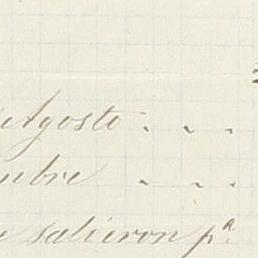 Agosto . . .
mbre . . .
e salieron pª